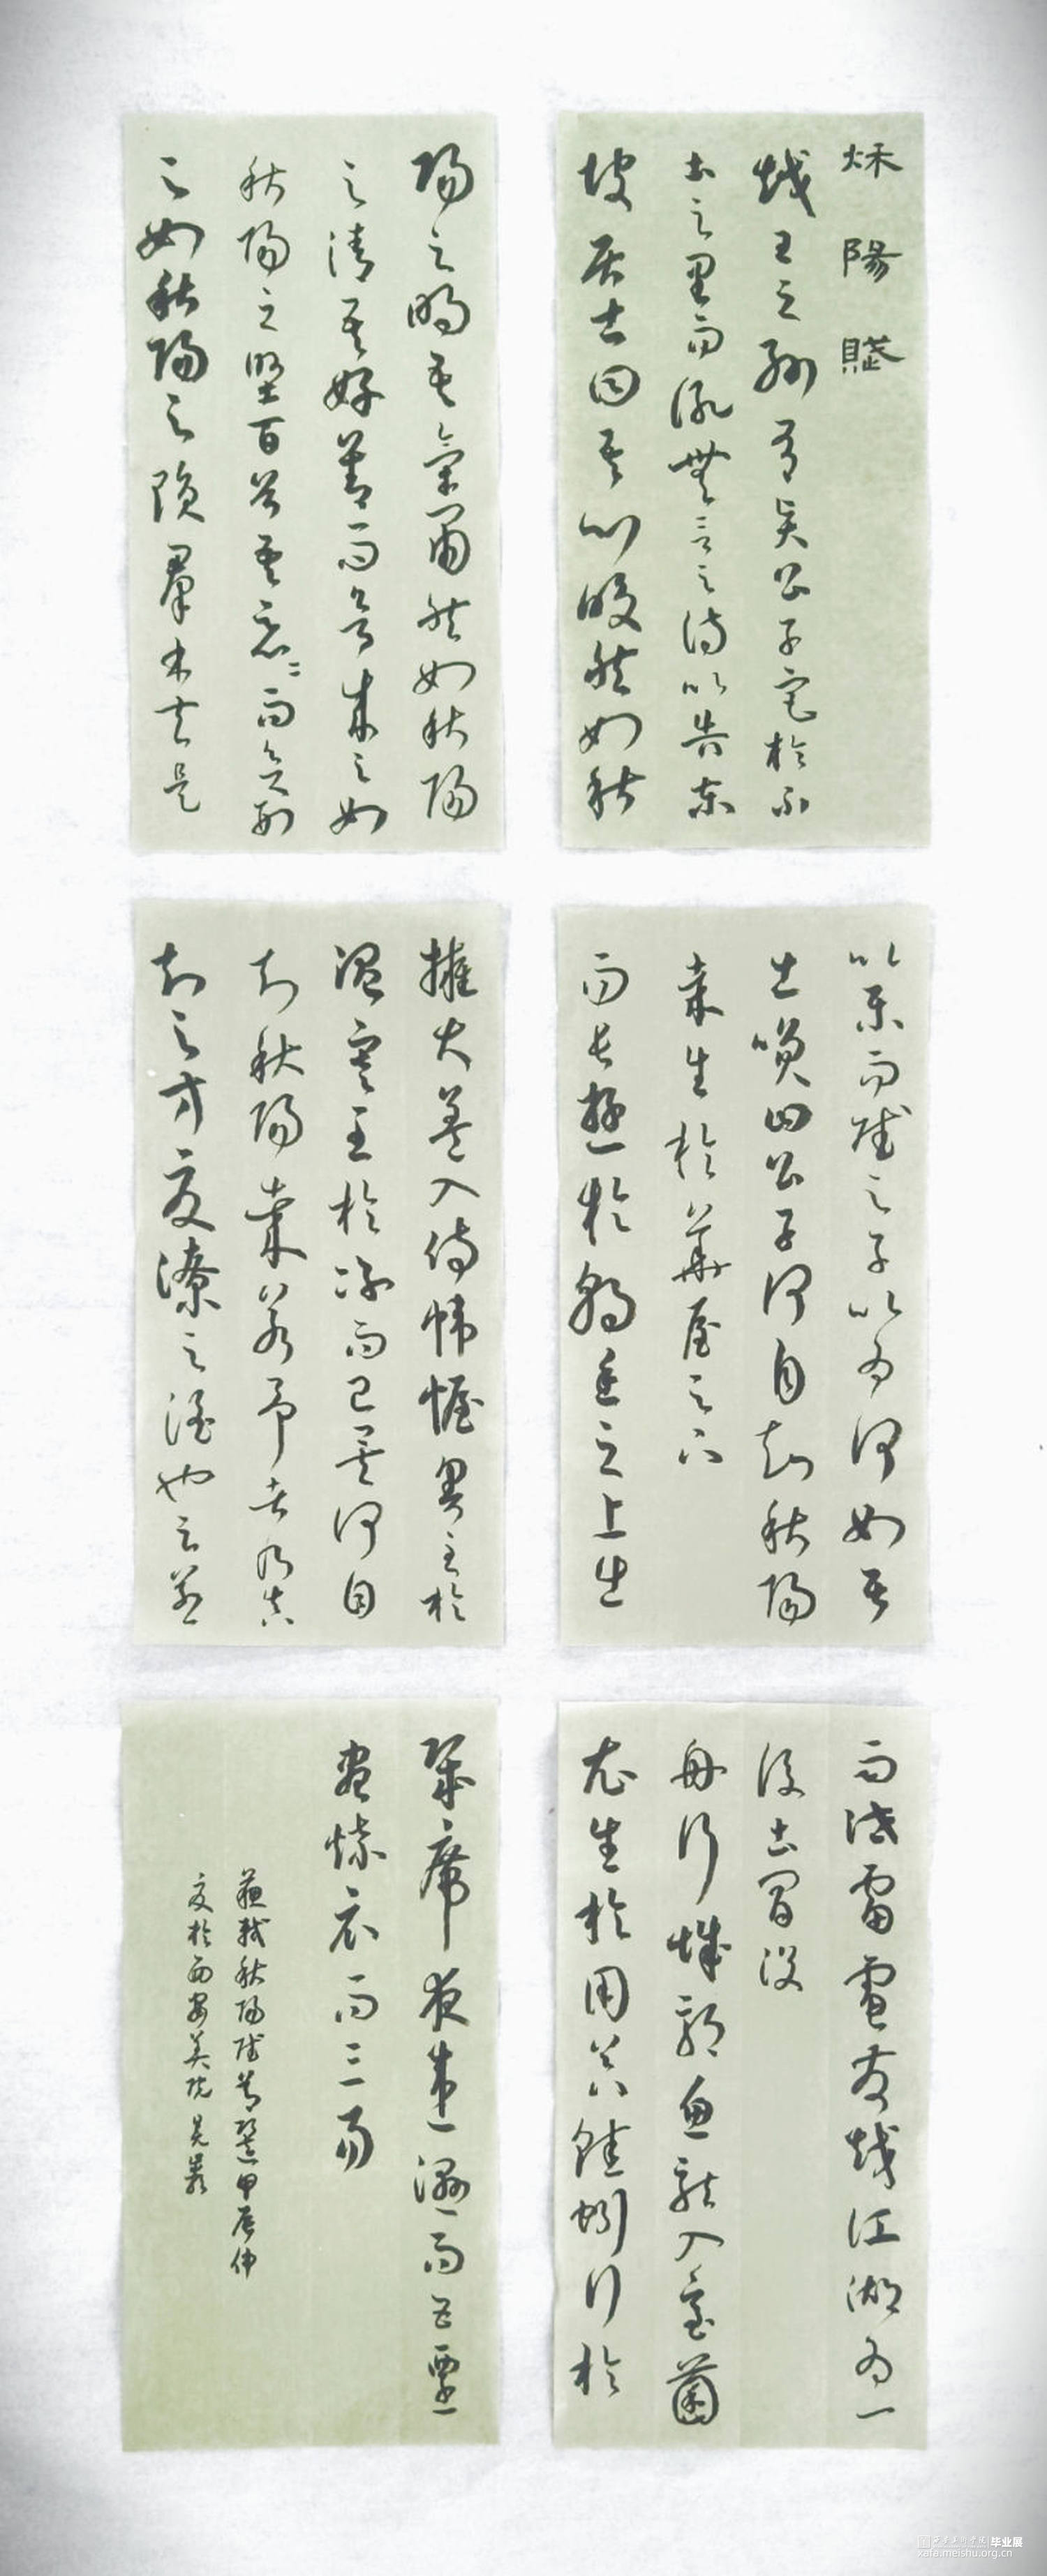 秌陽賦
越王之孫有賢公子宅於不
土之里而詠無言之詩以告東
坡居士曰吾心皎然如秋
陽之明吾氣肅然如秋陽
之清吾好善而欲成之如
秋陽之堅百谷吾惡〻而欲刑
之如秋陽之隕羣木夫是
以樂而賦之子以為何如居
士笑曰公子何自知秋陽
哉生於華屋之下
而長遊於朝廷之上出
擁大蓋入侍幃幄暑至於
溫寒至於涼而已矣何自
知秋陽哉若予者乃真
知之方夏潦之淫也云蒸
雨泄雷電發越江湖為一
後土冒没
舟行城郭魚龍入室菌
衣生於用器蛙蚓行於
几席夜違濕而五遷
晝燎衣而三易
蘇軾秋陽賦節選甲辰仲
夏於西安美院吳
毕业展
xafa.meishu.org.cn